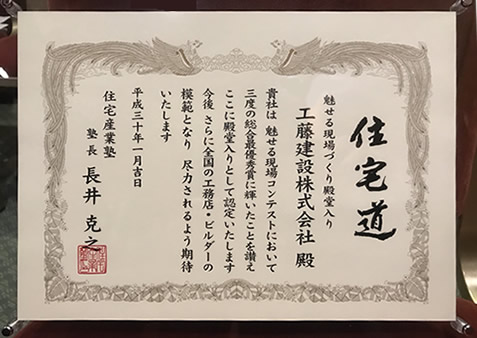 住宅道
魅せる現場づくり殿堂入り
工藤建設株式会社 殿
貴社は 魅せる現場コンテストにおいて
三度の総合最優秀賞に輝いたことを讃え
ここに殿堂入りとして認定いたします
今後 さらに全国の工務店・ビルダーの
模範となり 尽力されるよう期待
いたします
平成三十年一月吉日
住宅産業塾
塾長 長井克之